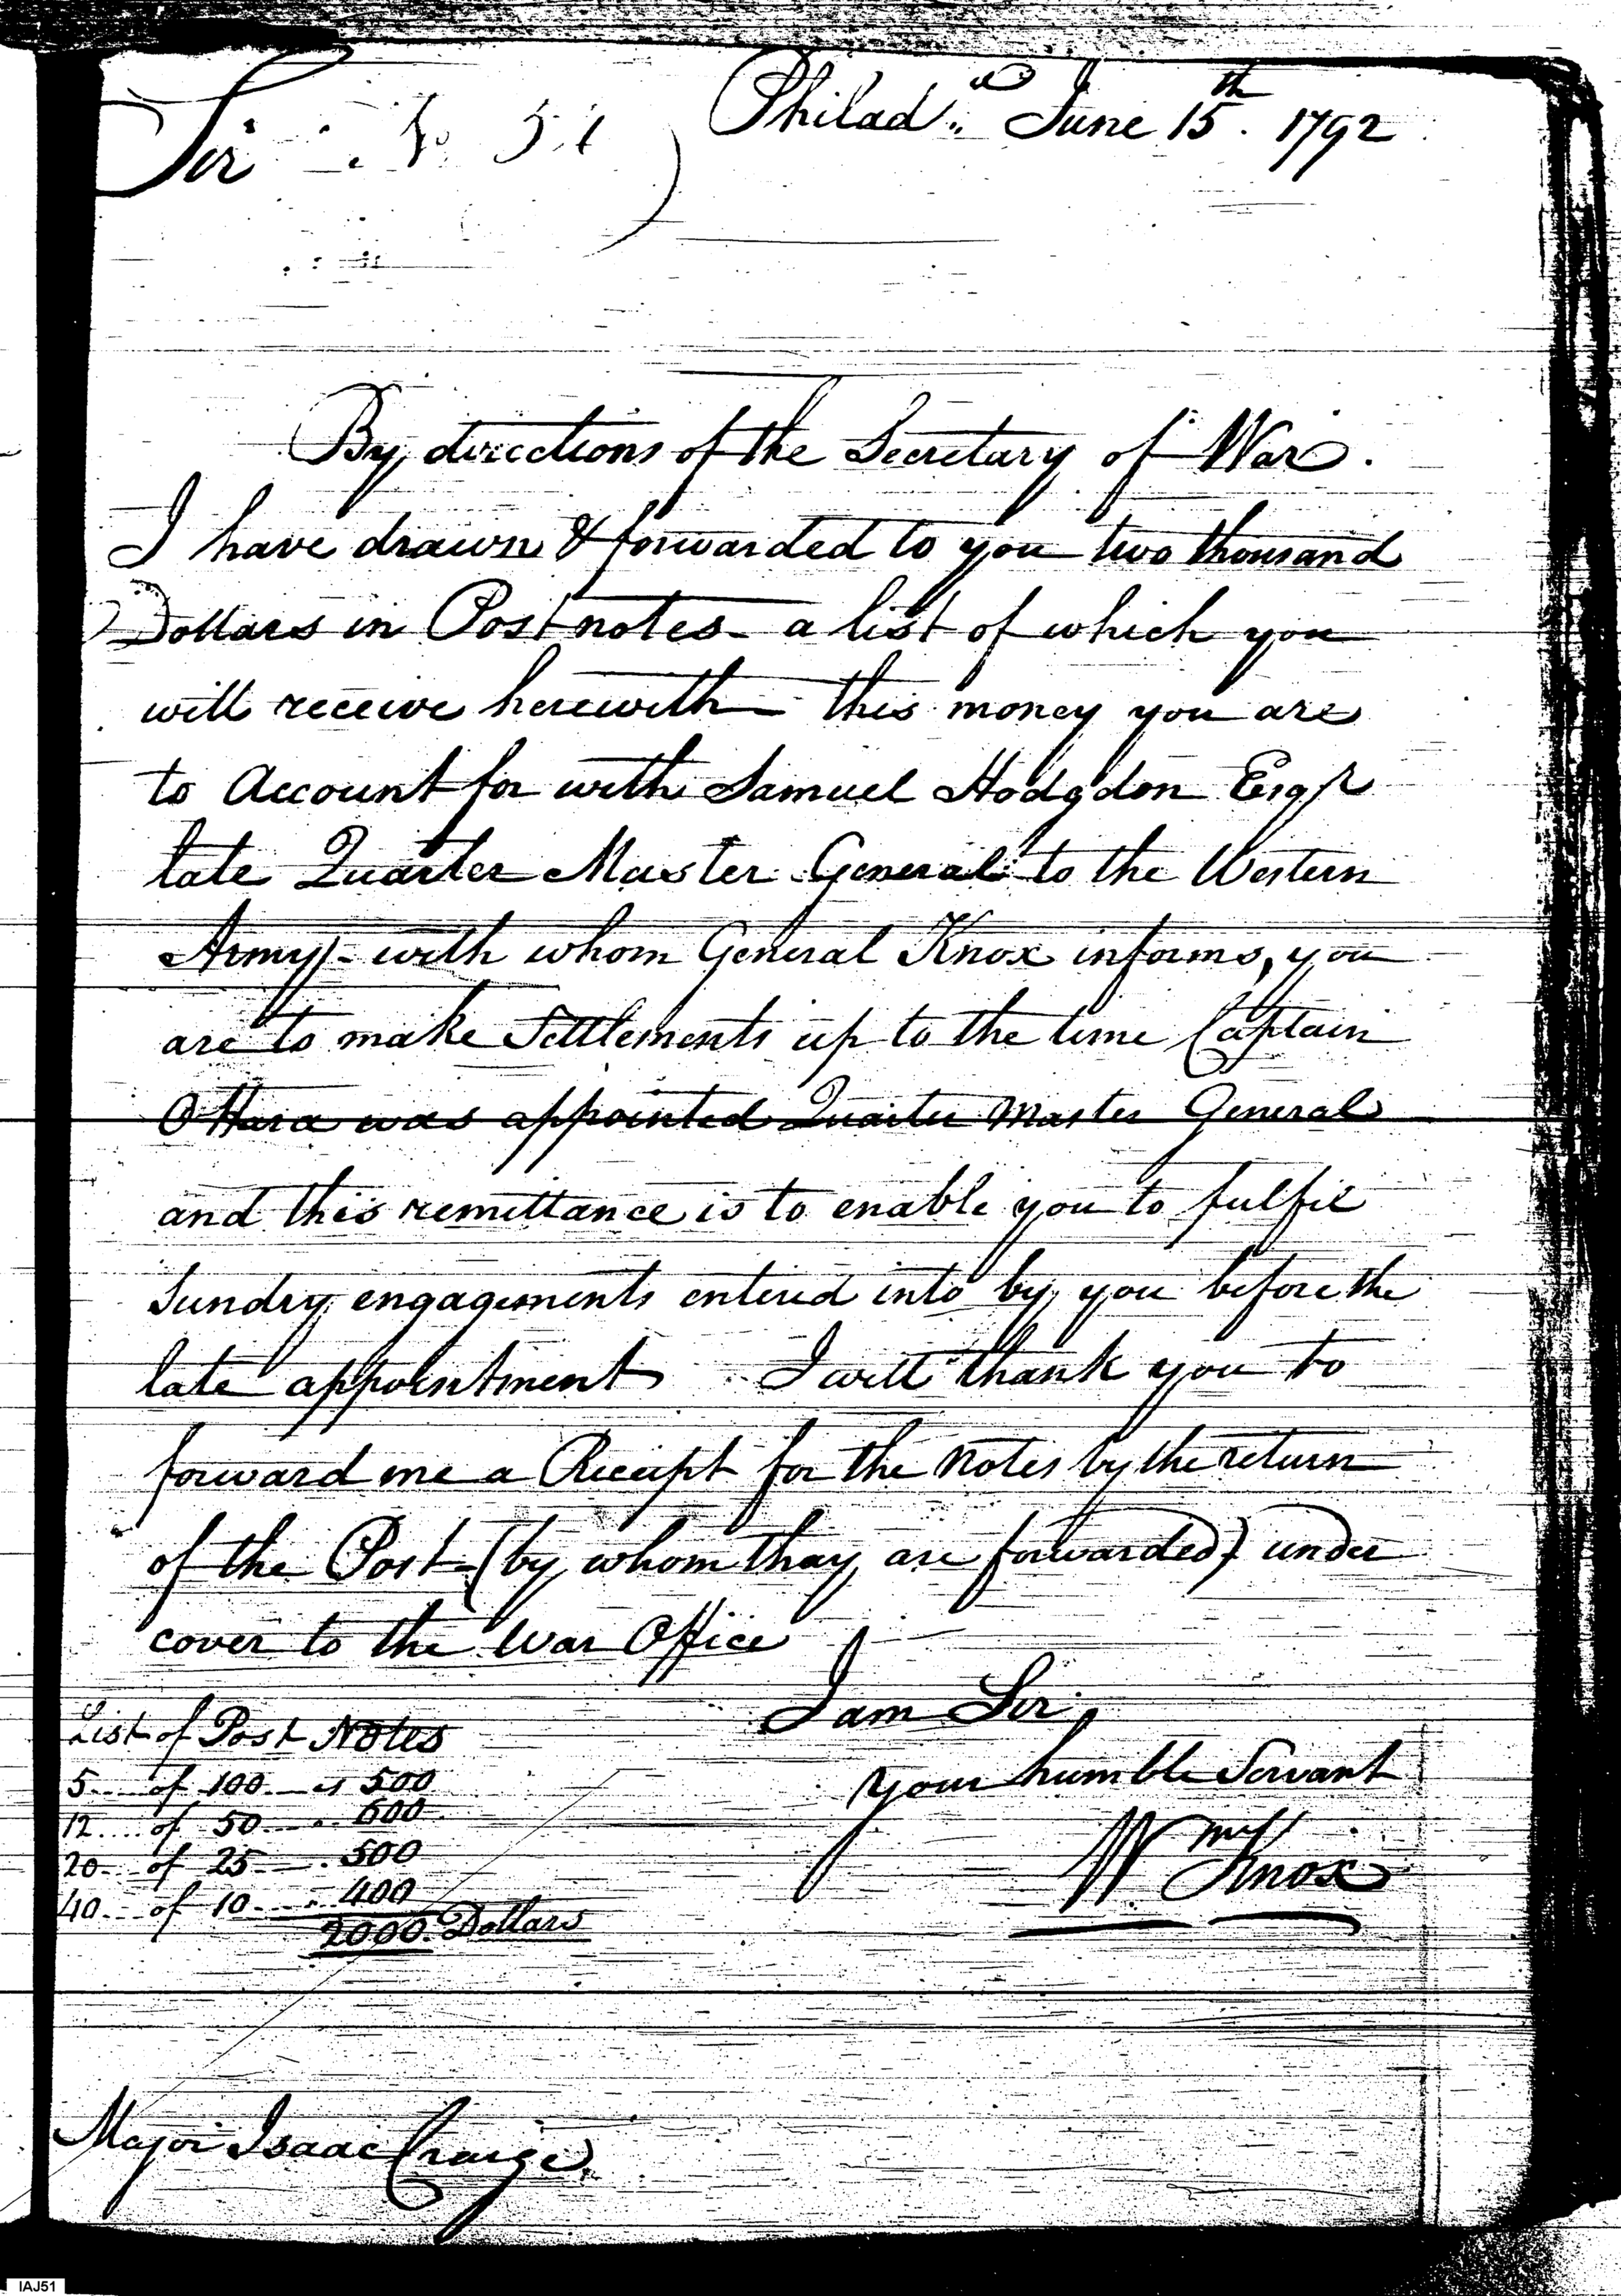 Philad.a June 15th. 1792
Sir
No 51
By directions of the Secretary of War.
I have drawn & forwarded to you two thousand
Dollars in Post notes - a list of which you
will receive herewith - this money you are
to Account for with Samuel Hodgdon Esqr
late Quarter Master General to the Western
Army - with whom General Knox informs, you
are to make Settlements up to the time Captain
O'Hara was appointed Quarter Master General
and this remittance is to enable you to fulfil
Sundry engagements entered into by you before the
late appointment I will thank you to
forward me a Receipt for the Notes by the return
of the Post - (by whom thay are forwarded) under
cover to the War Office
I am Sir
your humble Servant
Wm Knox
List of Post Notes
5 .... of 100 .... is 500
12 .... of 50 .... 600
20 ... of 25 .... 500
40 ... of 10 .... 400
2000. Dollars
Major Isaac Craige
IAJ51